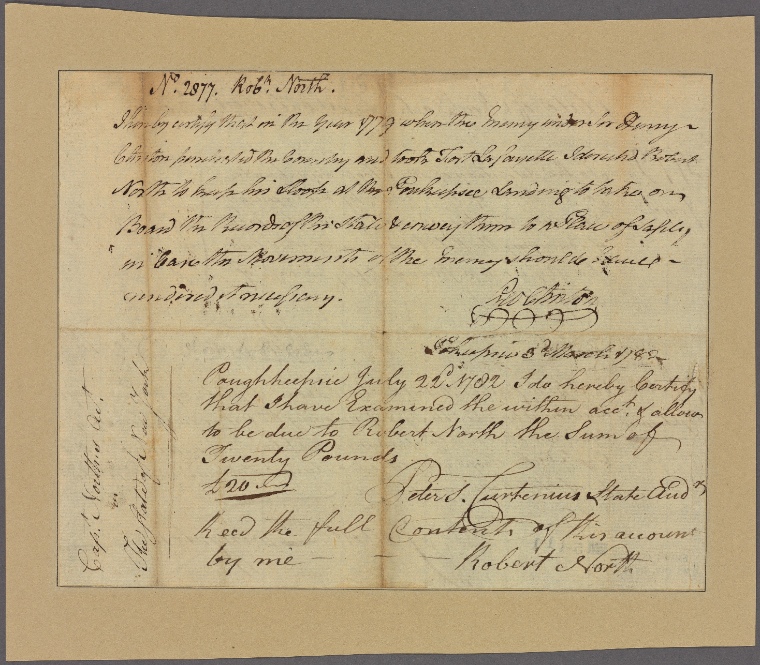 No. 2877. Robt. North.
I hereby certify that in the Year 1779 when the Enemy under Sir Henry
Clinton penetrated the Country and took Fort La Fayette I directed Robert
North to keep his Sloop at the Poukeepsee Landing to take on
Board the Records of the State & convey them to a Place of Safety
in Case the Movements of the Enemy should have
rendered it necessary.
Geo Clinton
Pokeepsie 3d March 1782
Poughkeepsie July 22d 1782 I do hereby Certify
that I have Examined the within acct. & allow
to be due to Robert North the Sum of
Twenty Pounds
£20
Peter T. Curtenius State Audr
Recd the full Contents of this account
by me
Robert North
Capt. Norths Act.
The State of New York